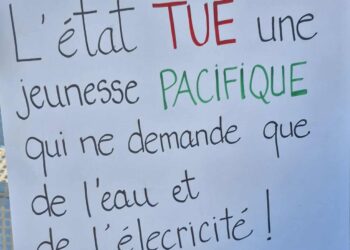 L'état TUE une
jeunesse PACIFIQUE
qui ne demande que
de l'eau et
de l'élecricité !